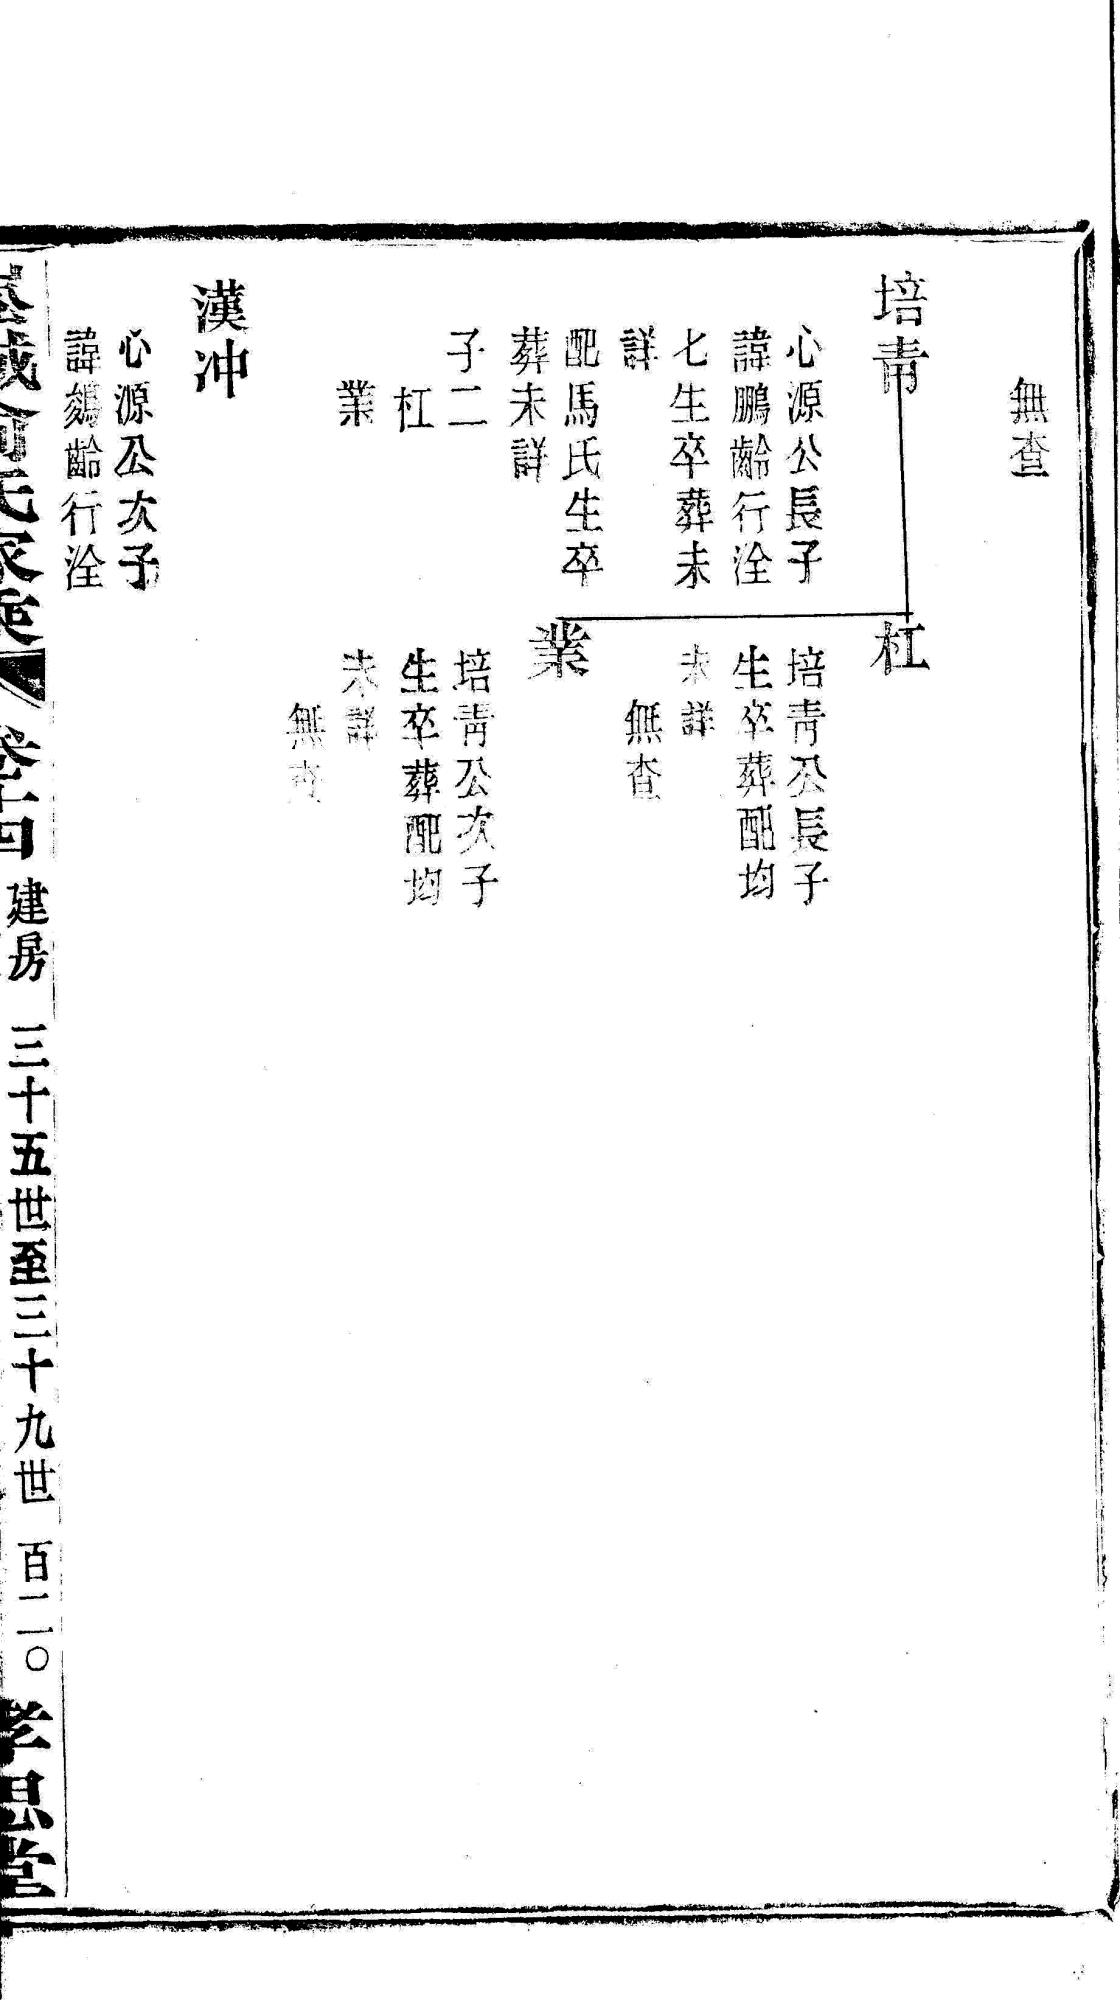 無查
培青
心源公長子
諱鵬齡行淦
七生卒葬未
詳
配馬氏生卒
葬未詳
子二
杠
業
杠
培青公長子
生卒葬配均
未詳
無查
業
培青公次子
生卒葬配均
未詳
無查
漢冲
心源公次子
諱鷯齡行淦
俞氏家乘
卷十四
建房
三十五世至三十九世
百二〇
孝思堂